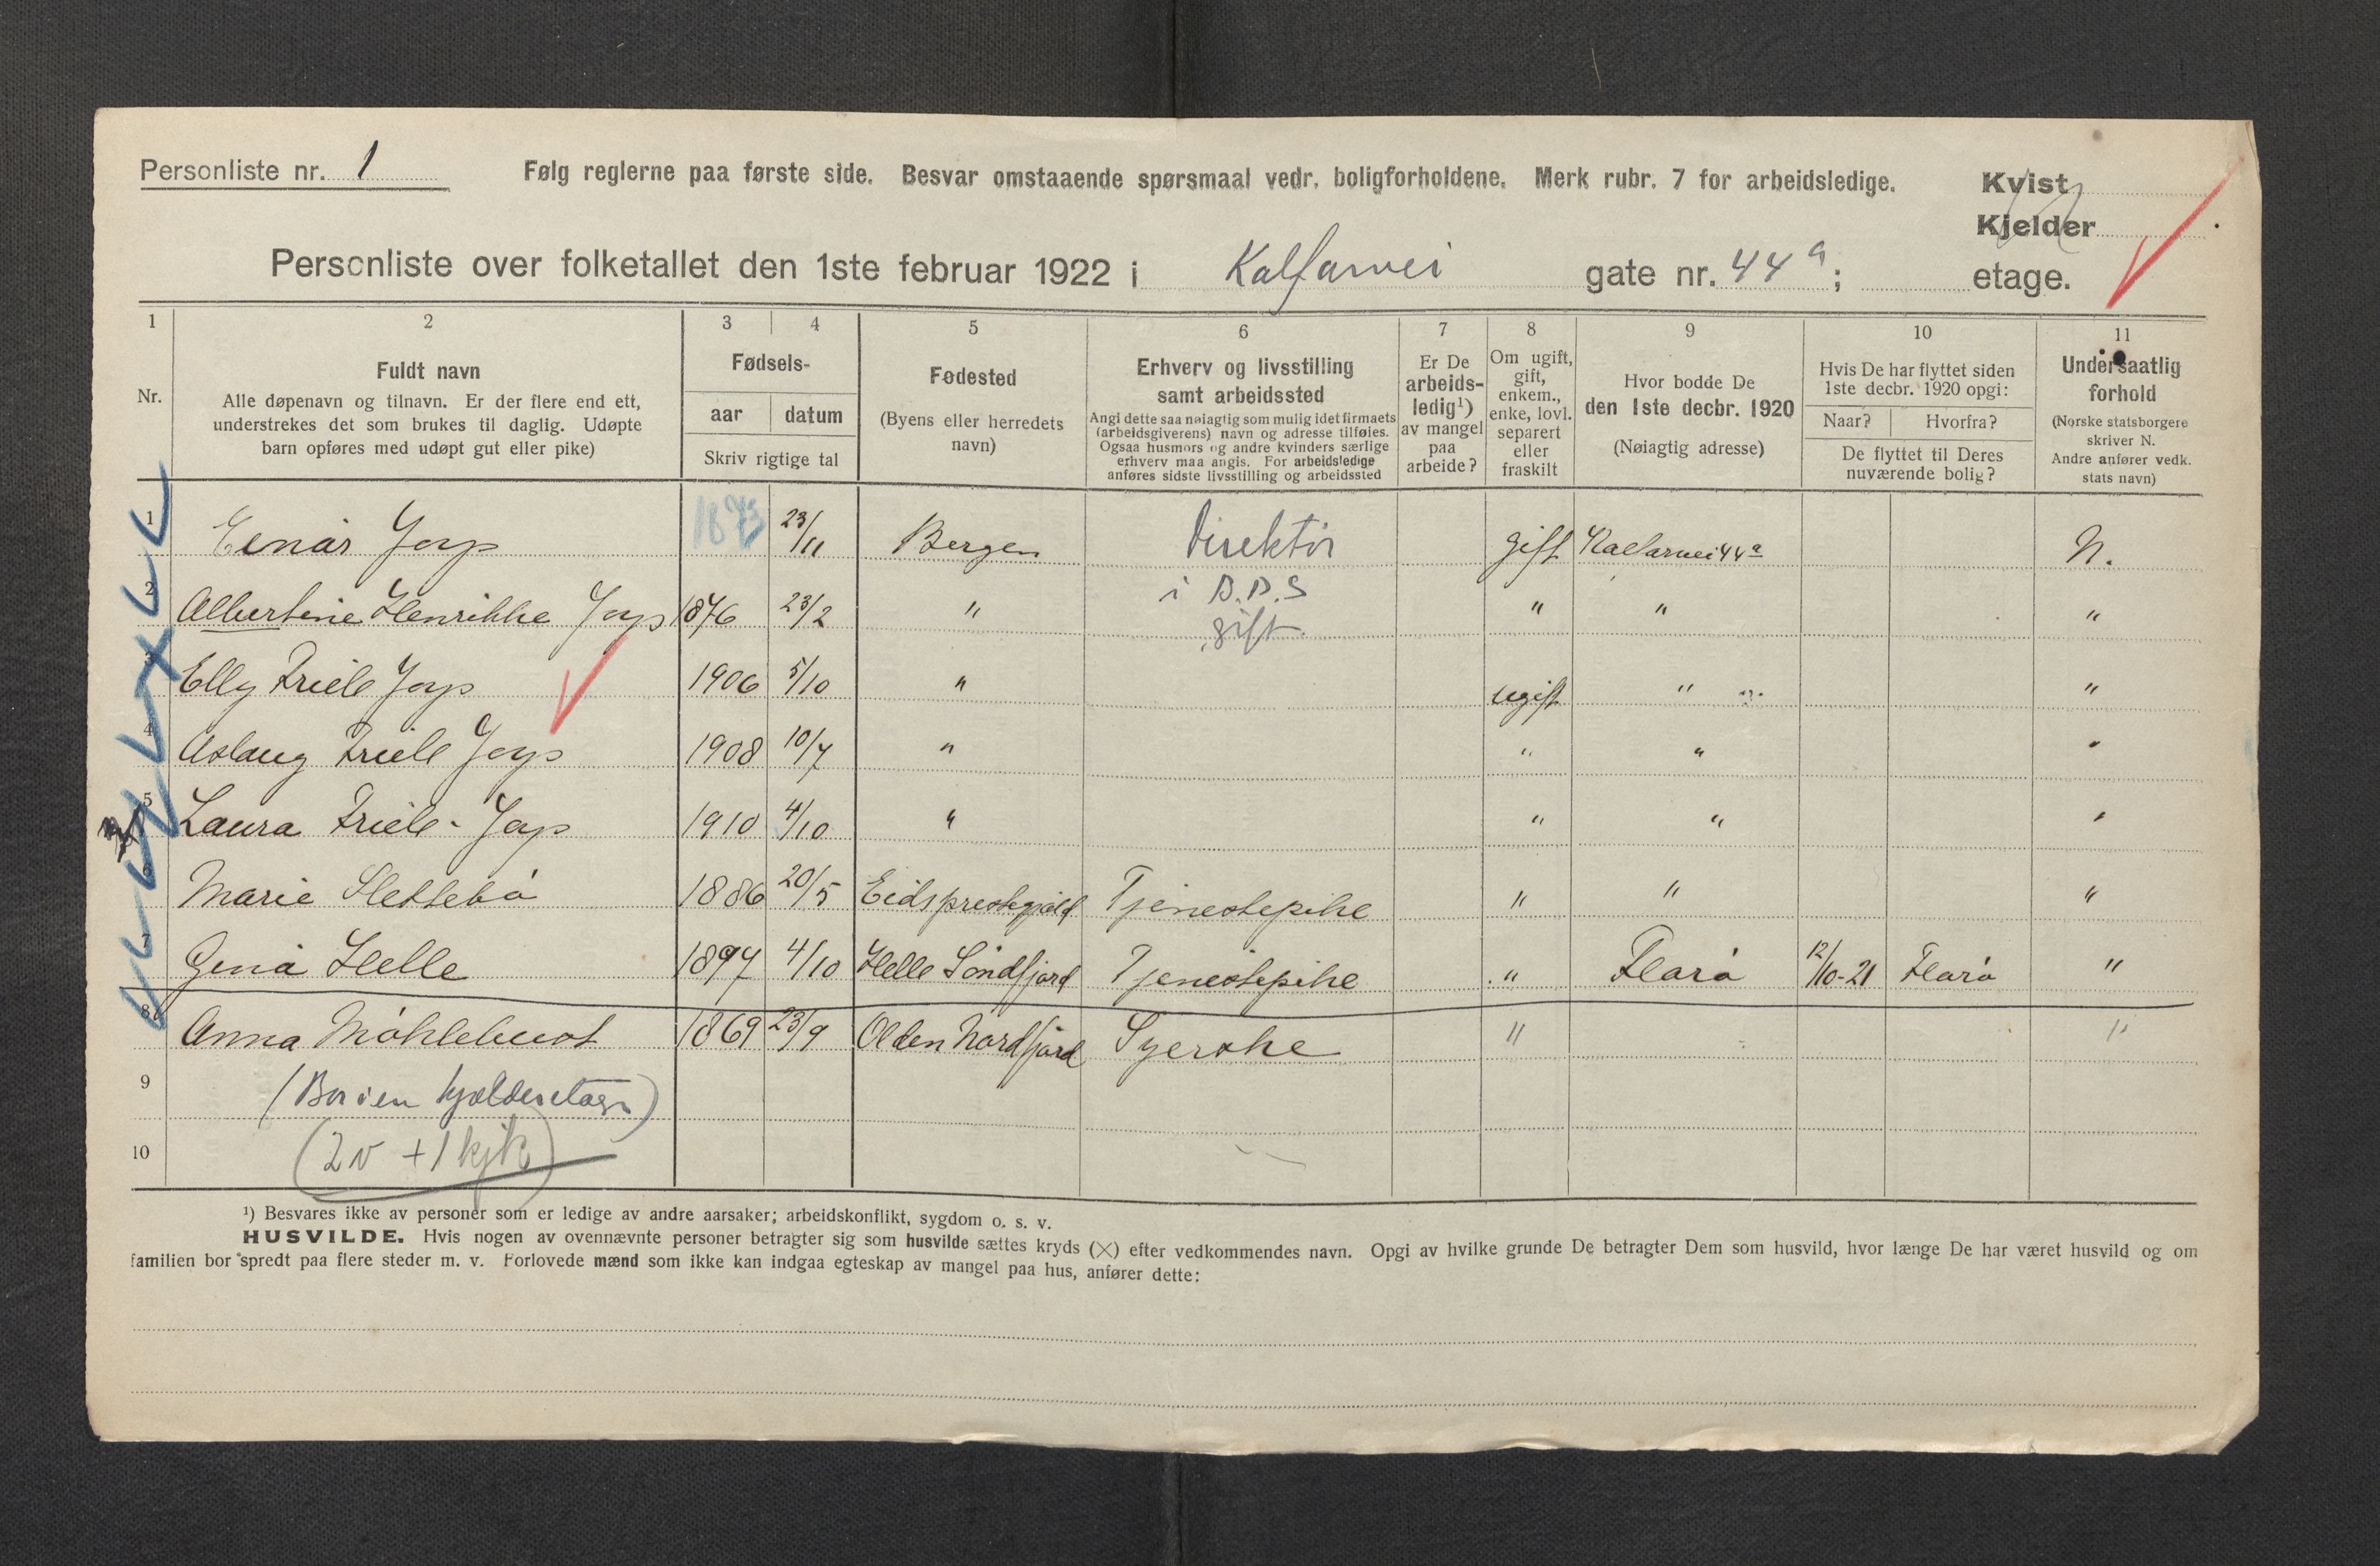 Personliste nr. 1 Følg reglerne paa første side. Besvar omstaaende spørsmaal vedr. boligforholdene. Merk rubr. 7 for arbeidsledige. Kvist
Kjelder
Personliste over folketallet den 1ste februar 1922 i Kalfarvei gate nr. 44 a; etage.
1 2 3 4 5 6 7 8 9 10 11
Nr.
Fuldt navn
Alle døpenavn og tilnavn. Er der flere end ett,
understrekes det som brukes til daglig. Udøpte
barn opføres med udøpt gut eller pike)
Fødsels-
aar datum
Skriv rigtige tal
Fødested
(Byens eller herredets
navn)
Erhverv og livsstilling
samt arbeidssted
Angi dette saa nøiagtig som mulig idet firmaets
(arbeidsgiverens) navn og adresse tilføies.
Ogsaa husmors og andre kvinders særlige
erhverv maa angis. For arbeidsledige
anføres sidste livsstilling og arbeidssted
Er De
arbeids-
ledig¹)
av mangel
paa
arbeide?
Om ugift,
gift,
enkem.,
enke, lovl.
separert
eller
fraskilt
Hvor bodde De
den 1ste decbr. 1920
(Nøiagtig adresse)
Hvis De har flyttet siden
1ste decbr. 1920 opgi:
Naar? Hvorfra?
De flyttet til Deres
nuværende bolig?
Undersaatlig
forhold
(Norske statsborgere
skriver N.
Andre anfører vedk.
stats navn)
1 Einar Joys 1873 23/11 Bergen Direktør gift Kalfarvei 44 a N.
i B.D.S
2 Albertine Henrikke Joys 1876 23/2 " gift " " "
3 Elly Friele Joys 1906 5/10 " ugift " " "
4 Aslaug Friele Joys 1908 10/7 " " " "
5 Laura Friele - Joys 1910 4/10 " " " "
6 Marie Slettebø 1886 20/5 Eids prestegjæld Tjenestepike " " "
7 Gina Helle 1897 4/10 Helle Søndfjord Tjenestepike " Florø 12/10-21 Florø "
8 Anna 1869 23/9 Olden Nordfjord Syerske " "
9 (Bor i en kjælderetage)
10 (2 v + 1 kjk)
¹) Besvares ikke av personer som er ledige av andre aarsaker; arbeidskonflikt, sygdom o. s. v.
HUSVILDE. Hvis nogen av ovennævnte personer betragter sig som husvilde sættes kryds (×) efter vedkommendes navn. Opgi av hvilke grunde De betragter Dem som husvild, hvor længe De har været husvild og om
familien bor spredt paa flere steder m. v. Forlovede mænd som ikke kan indgaa egteskap av mangel paa hus, anfører dette: